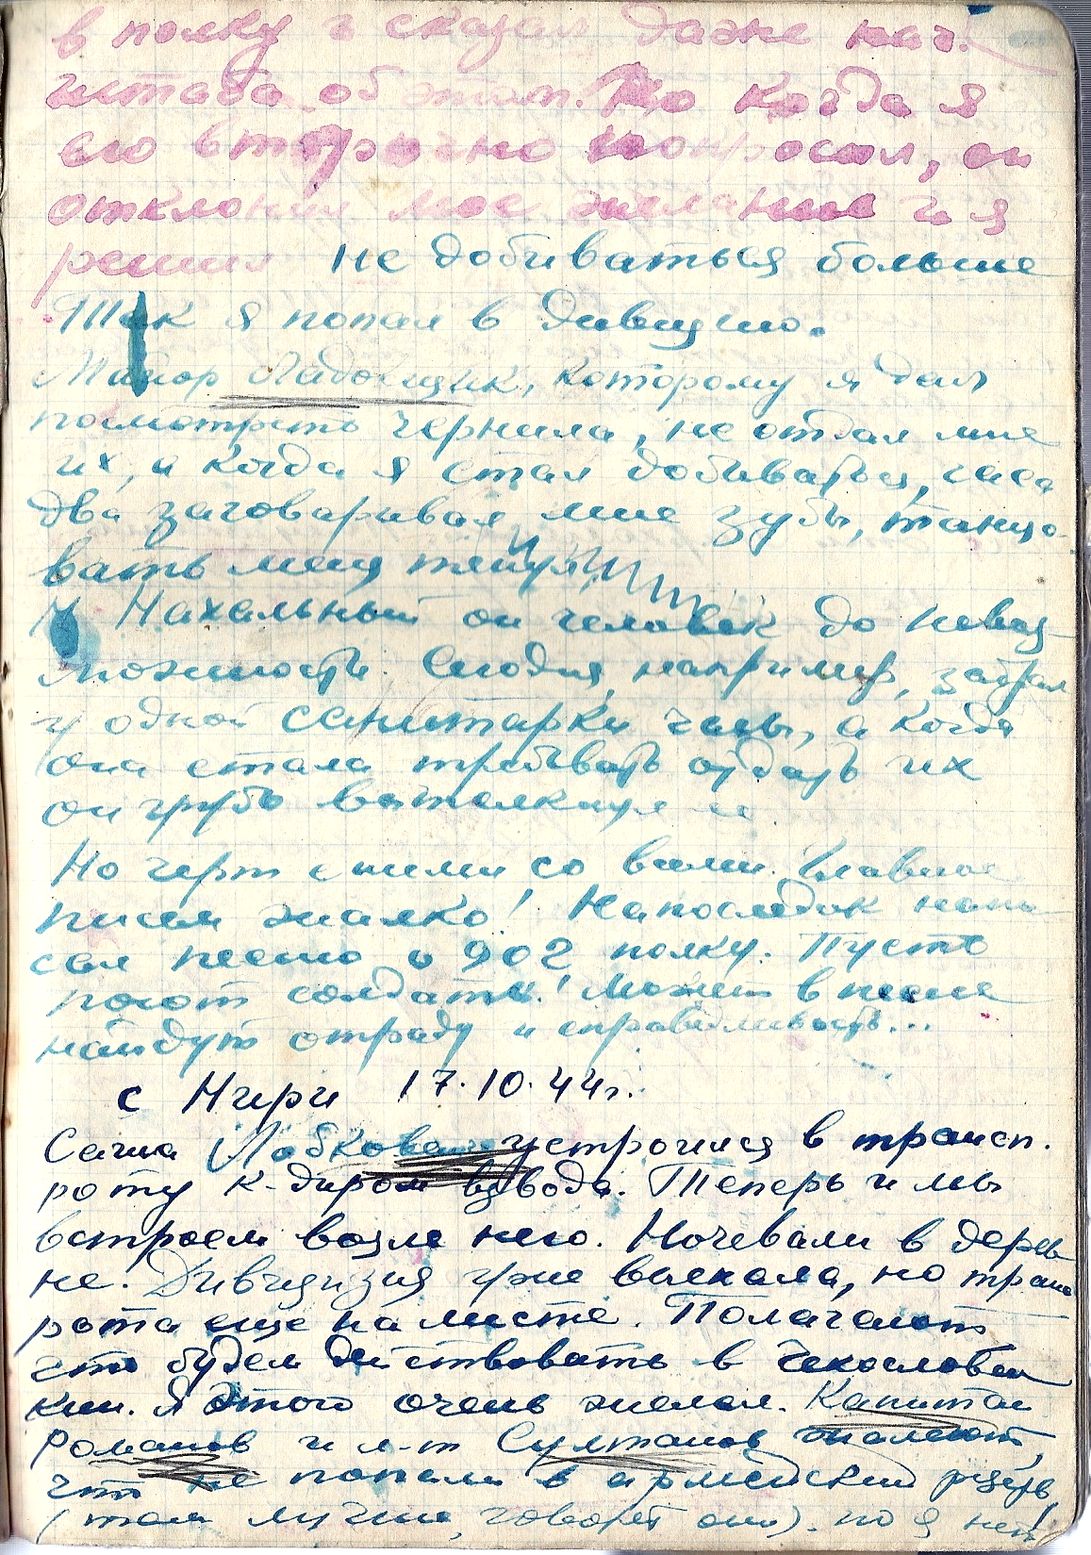 в полку и сказал даже нач.
штаба об этом. Но когда я
его вторично попросил, он
отклонил мое желание и я
решил не добиваться больше
Так я попал в дивизию.
Майор Ладовщик, которому я дал
посмотреть чернила, не отдал мне
их, а когда я стал добиваться, часа
два заговаривал мне зубы, танцо-
вать меня тянул,
Нахальный он человек до невоз-
можности. Сегодня, например, забрал
у одной санитарки часы, а когда
она стала требовать отдать их
он грубо вытолкнул ее.
Но черт с ними со всеми. Главное
писем жалко! Напоследок напи-
сал песню о 902 полку. Пусть
поют солдаты! Может в песне
найдут отраду и справедливость...
с Нири 17.10.44г.
Сашка Лобкован устроился в трансп.
роту к-диром взвода. Теперь и мы
встроем возле него. Ночевали в дерев-
не. Дивизия уже выехала, но трансп
рота еще на месте. Полагают
что будем действовать в Чехословак
кии. Я этого очень желал. Капитан
Романов и л-т Султанов жалеют,
что не попали в армейский резерв
(там лучше, говорят они). но я нет!